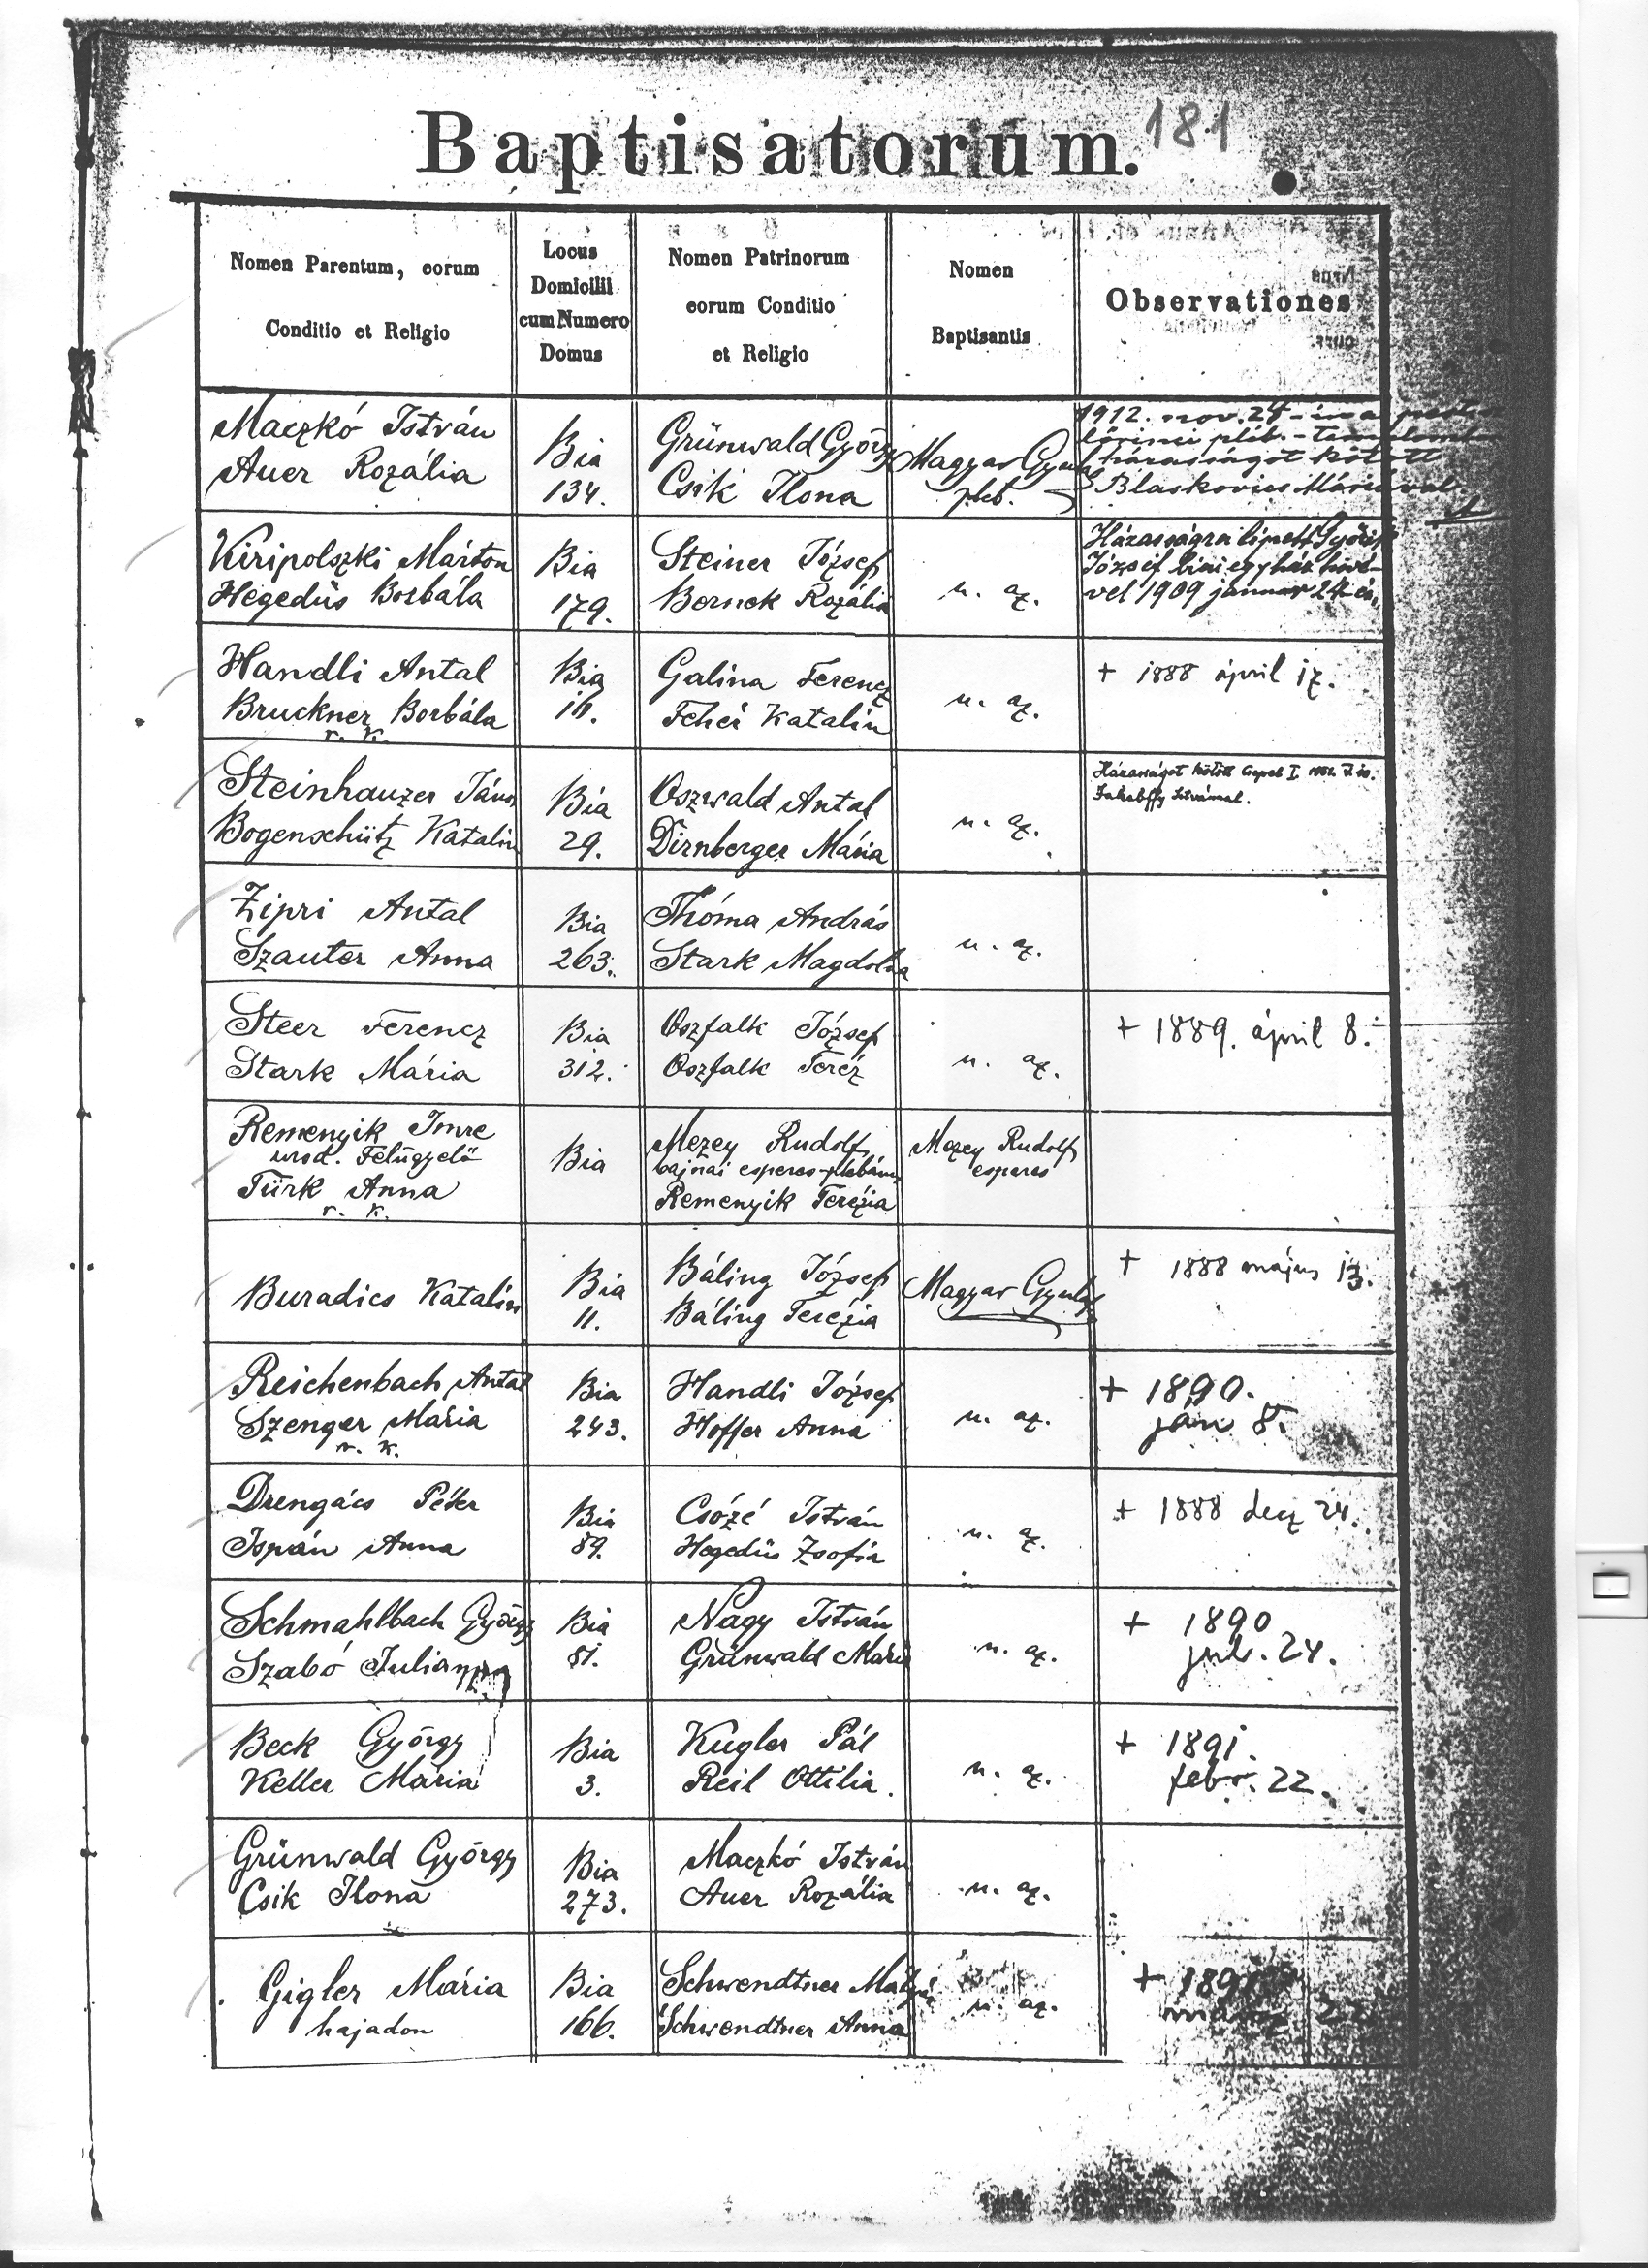 Baptisatorum.
181
Nomen Parentum, eorum
Conditio et Religio
Locus
Domicilii
cum Numero
Domus
Nomen Patrinorum
eorum Conditio
et Religio
Nomen
Baptisantis
Observationes
Maczkó István
Auer Rozália
Bia
134.
Grünwald György
Csik Ilona
Magyar Gyula
pleb.
1912. nov. 24-én a
lőrinci pléb.-templomban
házasságot kötött
Blaskovics Máriával
Kiripolszki Márton
Hegedüs Borbála
Bia
179.
Steiner József
Bernek Rozália
u. az.
Házasságra lépett
József biai egyház
vel 1909 január 24-én.
Handli Antal
Bruckner Borbála
r. k.
Bia
Galina Ferencz
Fehér Katalin
u. az.
+ 1888 ápril 17.
Steinhauzer János
Bogenschütz Katalin
Bia
29.
Oszwald Antal
Dirnberger Mária
u. az.
Házasságot kötött Csepel I.
Zipri Antal
Szauter Anna
Bia
263.
Thóma András
Stark Magdolna
u. az.
Steer Ferencz
Stark Mária
Bia
312.
Oszfalk József
Oszfalk Teréz
u. az.
+ 1889. ápril 8.
Remenyik Imre
urod. Felügyelő
Türk Anna
r. k.
Bia
Mezey Rudolf
bajnai esperes-plébános
Remenyik Terézia
Mezey Rudolf
esperes
Buradics Katalin
Bia
11.
Báling József
Báling Terézia
Magyar Gyula
+ 1888 május 13.
Reichenbach Antal
Szenger Mária
r. k.
Bia
243.
Handli József
Hoffer Anna
u. az.
+ 1890.
jan 8.
Drengács Péter
Ispán Anna
Bia
89.
Csózé István
Hegedüs Zsofia
u. az.
+ 1888 decz 24.
Schmahlbach György
Szabó Julianna
Bia
81.
Nagy István
Grünwald Mária
u. az.
+ 1890
jul. 24.
Beck György
Keller Mária
Bia
3.
Kugler Pál
Reil Ottilia.
u. az.
+ 1891.
febr. 22.
Grünwald György
Csik Ilona
Bia
273.
Maczkó István
Auer Rozália
u. az.
Gigler Mária
hajadon
Bia
166.
Schwendtner Mátyás
Schwendtner Anna
u. az.
+ 1891